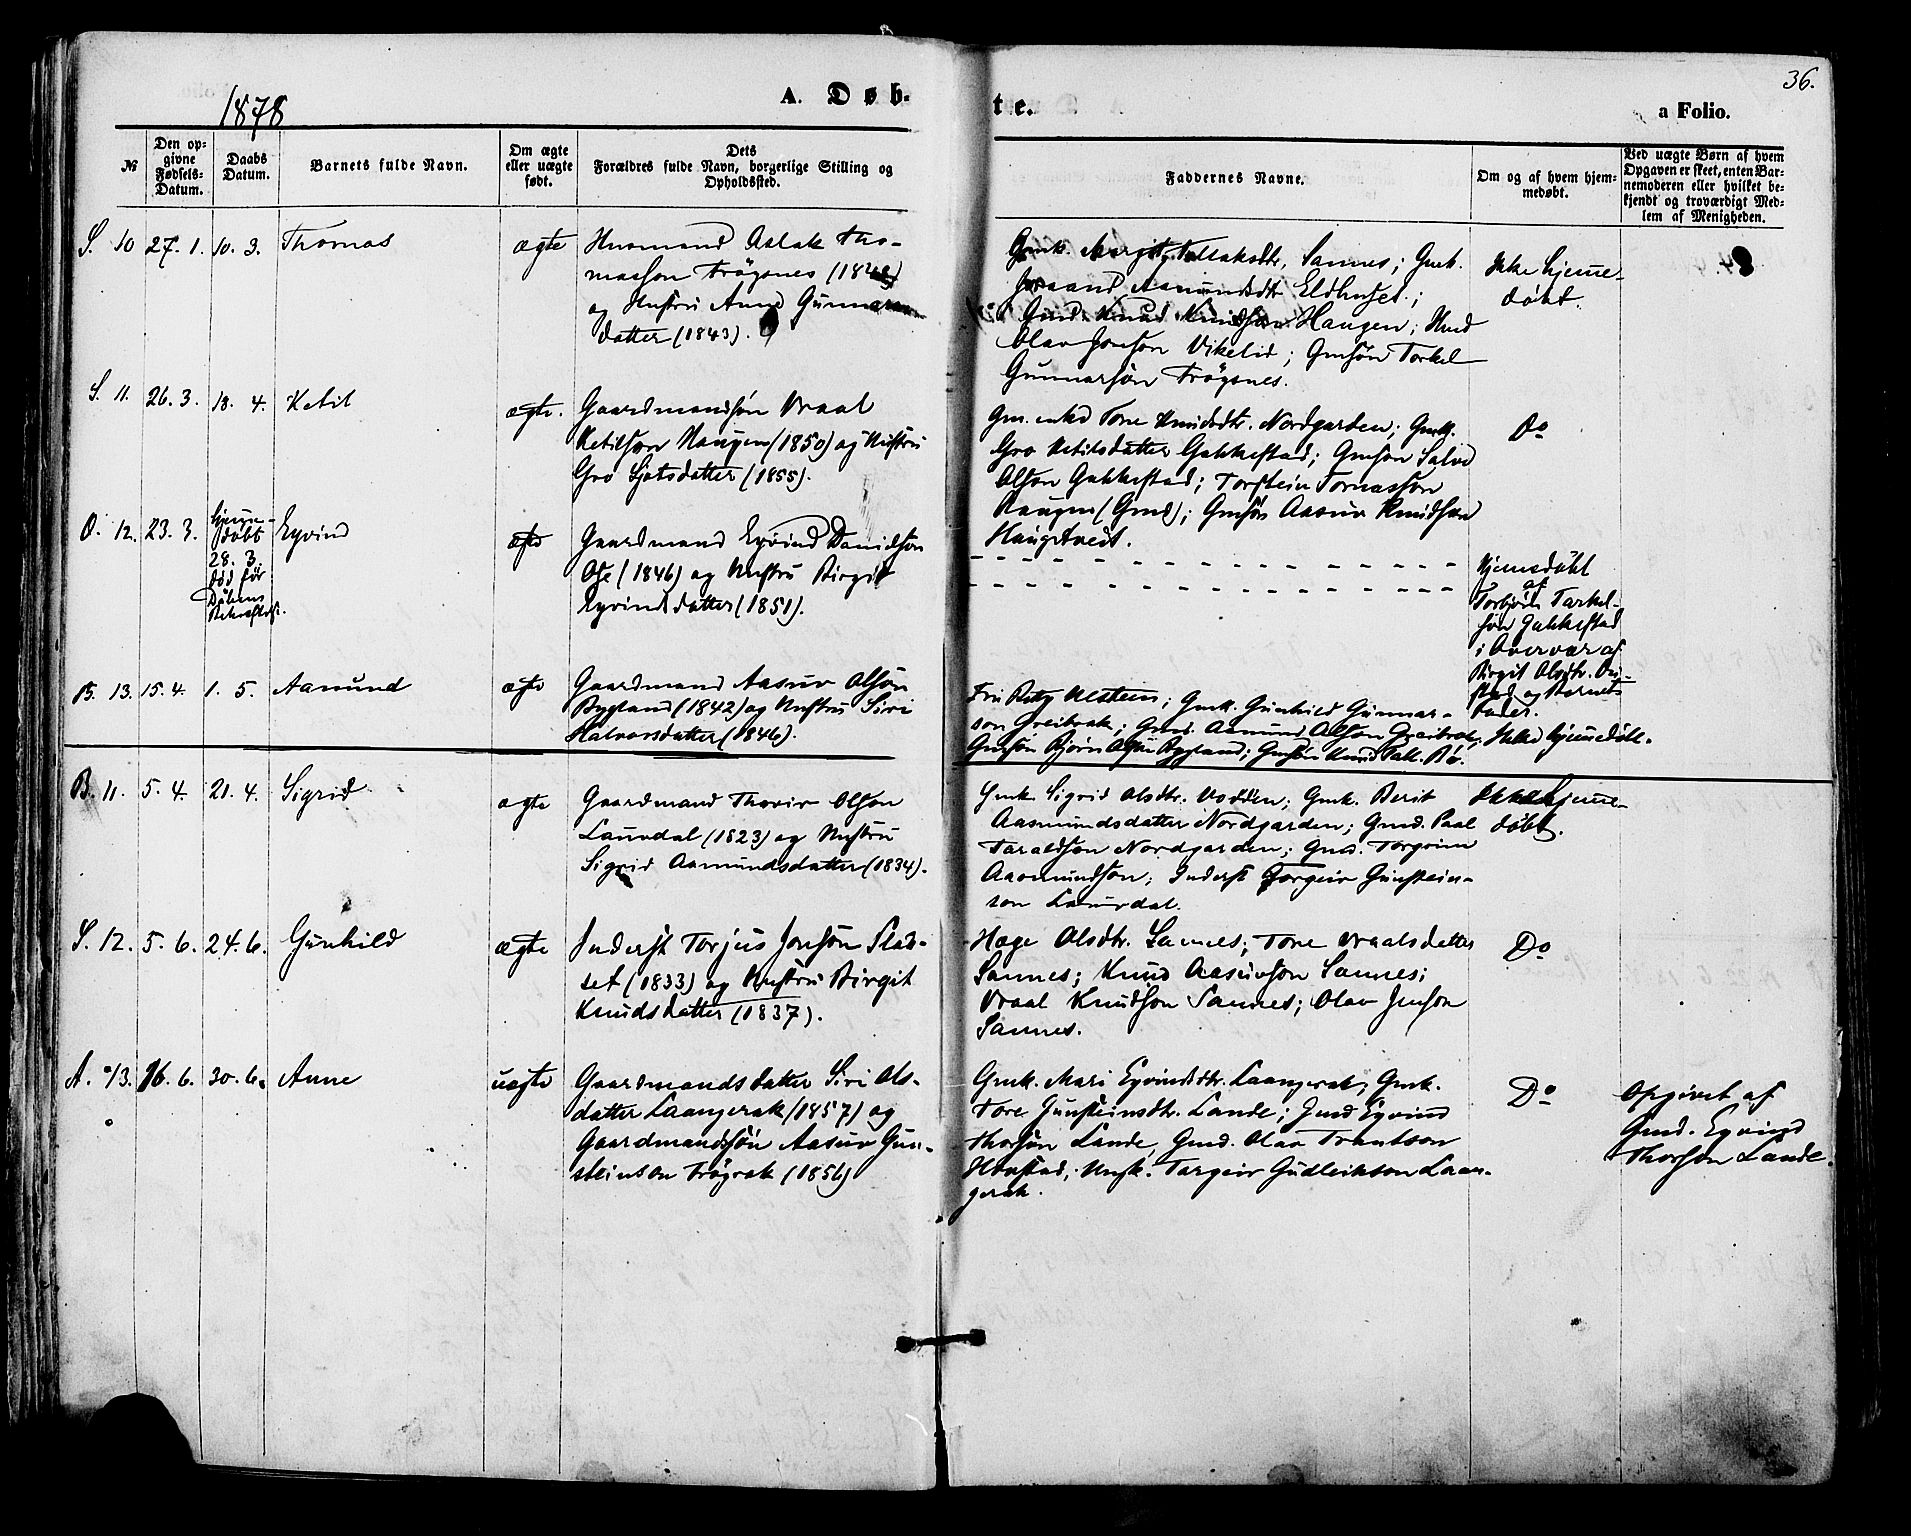 36.
1878
A. Døb-
te.
a Folio.
№
Den op-
givne
Fødsels-
Datum.
Daabs
Datum.
Barnets fulde Navn.
Om ægte
eller uægte
født.
Dets
Forældres fulde Navn, borgerlige Stilling og
Opholdssted.
Faddernes Navne.
Om og af hvem hjem-
medøbt.
Ved uægte Børn af hvem
Opgaven er skeet, enten Bar-
nemoderen eller hvilket be-
kjendt og troværdigt Med-
lem af Menigheden.
S. 10 27. 1. 10. 3. Thomas ægte
Husmand Aslak Tho-
masson Trøgsnes (1848)
og Hustru Anne Gunnars
datter (1843).
Gmk. Margit Tallaksdtr. Sannes; Gmk.
Joraand Aamundsdtr Eldhuset;
Gmd. Knud Knudson Haugen; Hmd
Olav Jonson Vikelid; Gmsøn Torkel
Gunnarsøn Trøgsnes.
Ikke hjemme-
døbt.
S. 11. 26. 3. 18. 4. Ketil ægte.
Gaardmandsøn Vraal
Ketilson Haugen (1850) og Hustru
Gro Sjøtsdatter (1855).
Gm. enke Tone Knudsdtr. Nordgarden; Gmk.
Gro Ketilsdatter Gakkestad; Gmsøn Salve
Olson Gakkestad; Torstein Tomasson
Haugen (Gmd); Gmsøn Aasuv Knudson
Haugetveit.
Do
O. 12. 23. 3.
hjemme-
døbt
28. 3
død før
Daabens
Bekræftelse.
Eyvind ægte
Gaardmand Eyvind Danielson
Ose (1846) og Hustru Birgit
Eyvindsdatter (1851).
Hjemmedøbt
af
Torbjørn Tarkel-
søn Gakkestad
i Overvær af
Birgit Olsdtr.
stad og Barnets
Fader.
B. 13. 15. 4. 1. 5. Aamund ægte
Gaardmand Aasuv Olsøn
Bygland (1842) og Hustru Siri
Halvorsdatter (1846).
Fru Betzy Ulstein; Gmk. Gunhild Gunnar-
son Greibrok; Gmd. Aamund Olson Greibrok;
Gmsøn Bjørn Olson Bygland; Gmsøn Knud Tall. Bø.
Ikke hjemmedøbt.
B. 11. 5. 4. 21. 4. Sigrid ægte
Gaardmand Thorir Olson
Lauvdal (1823) og Hustru
Sigrid Aamundsdatter (1834).
Gmk. Sigrid Olsdtr. Vodden; Gmk. Berit
Aasmundsdatter Nordgarden; Gmd. Paal
Taraldson Nordgarden; Gmd. Torgrim
Aasmundson; Inderst Torgeir Gunstein-
son Lauvdal.
Ikke hjemme-
døbt.
S. 12. 5. 6. 24. 6. Gunhild ægte
Inderst Torjus Jonson Flat-
set (1833) og Hustru Birgit
Knudsdatter (1837).
Hæge Olsdtr. Sannes; Tone Vraalsdatter
Sannes; Knud Aasuvson Sannes;
Vraal Knudson Sannes; Olav Jenson
Sannes.
Do
A. 13. 16. 6. 30. 6. Anne uægte
Gaardmandsdatter Siri Ols-
datter Laangerak (1857) og
Gaardmandsøn Aasuv Gun-
steinson Trøgrak (1856)
Gmk. Mari Eyvindsdtr. Laangerak; Gmk.
Tore Gunsteinsdtr. Lande; Gmd Eyvind
Thorson Lande, Gmd. Olav Trontson
Horstad; Ungk. Targeir Gudleikson Laan-
gerak.
Do
Opgivet af
Gmd. Eyvind
Thorson Lande.